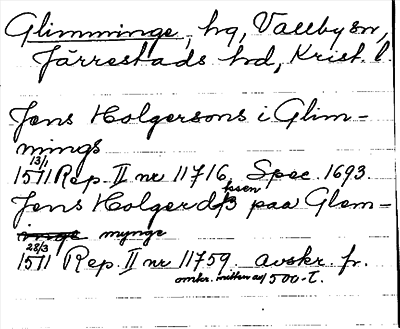 Glimminge, hg, Vallby sn,
Järrestads hd, Krist. l.
Jens Holgersons i Glim-
minge
13/1
1511 Rep. II nr 11716, Spec. 1693.
ssen
Jens Holgerdß paa Glem-
mynge
28/3
1511 Rep. II nr 11759. avskr. fr.
omkr. mitten av 1500-t.